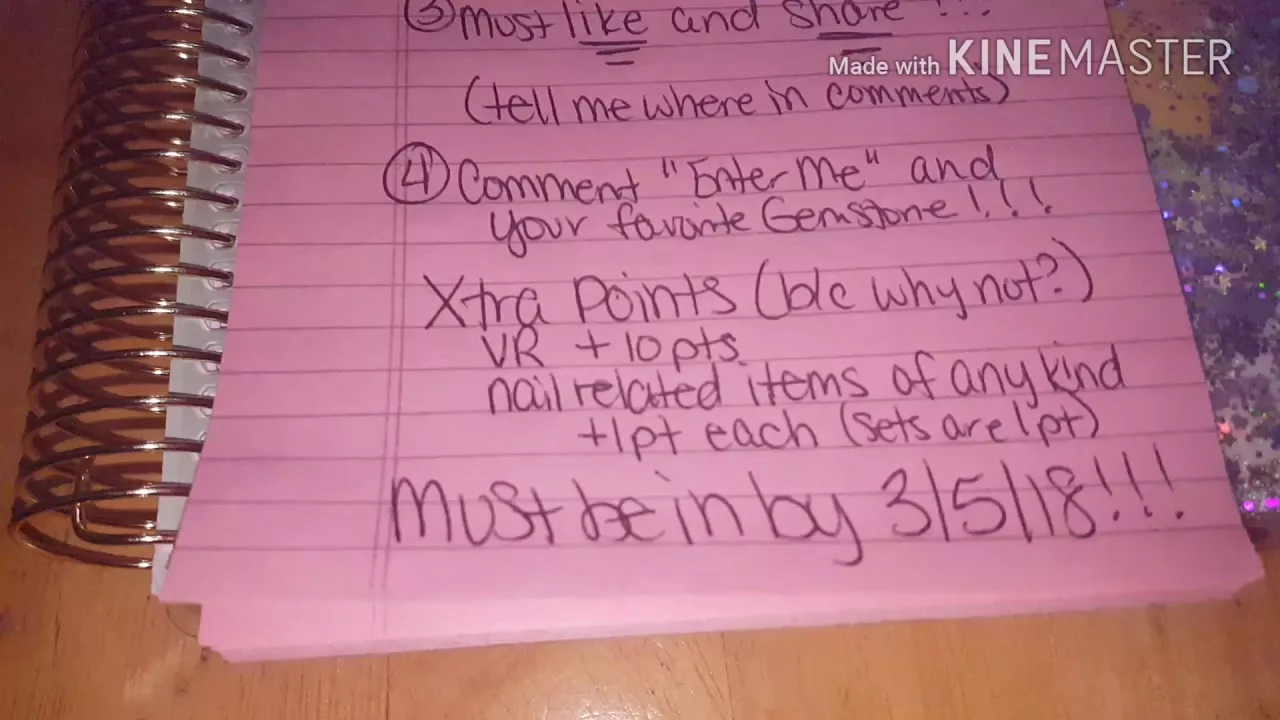 ③ Must like and share !!!
Made with KINEMASTER
(tell me where in comments)
④ Comment "Enter Me" and
your favorite Gemstone!!!
Xtra Points (b/c why not?)
VR + 10 pts
nail related items of any kind
+1pt each (sets are 1pt)
Must be in by 3/5/18!!!